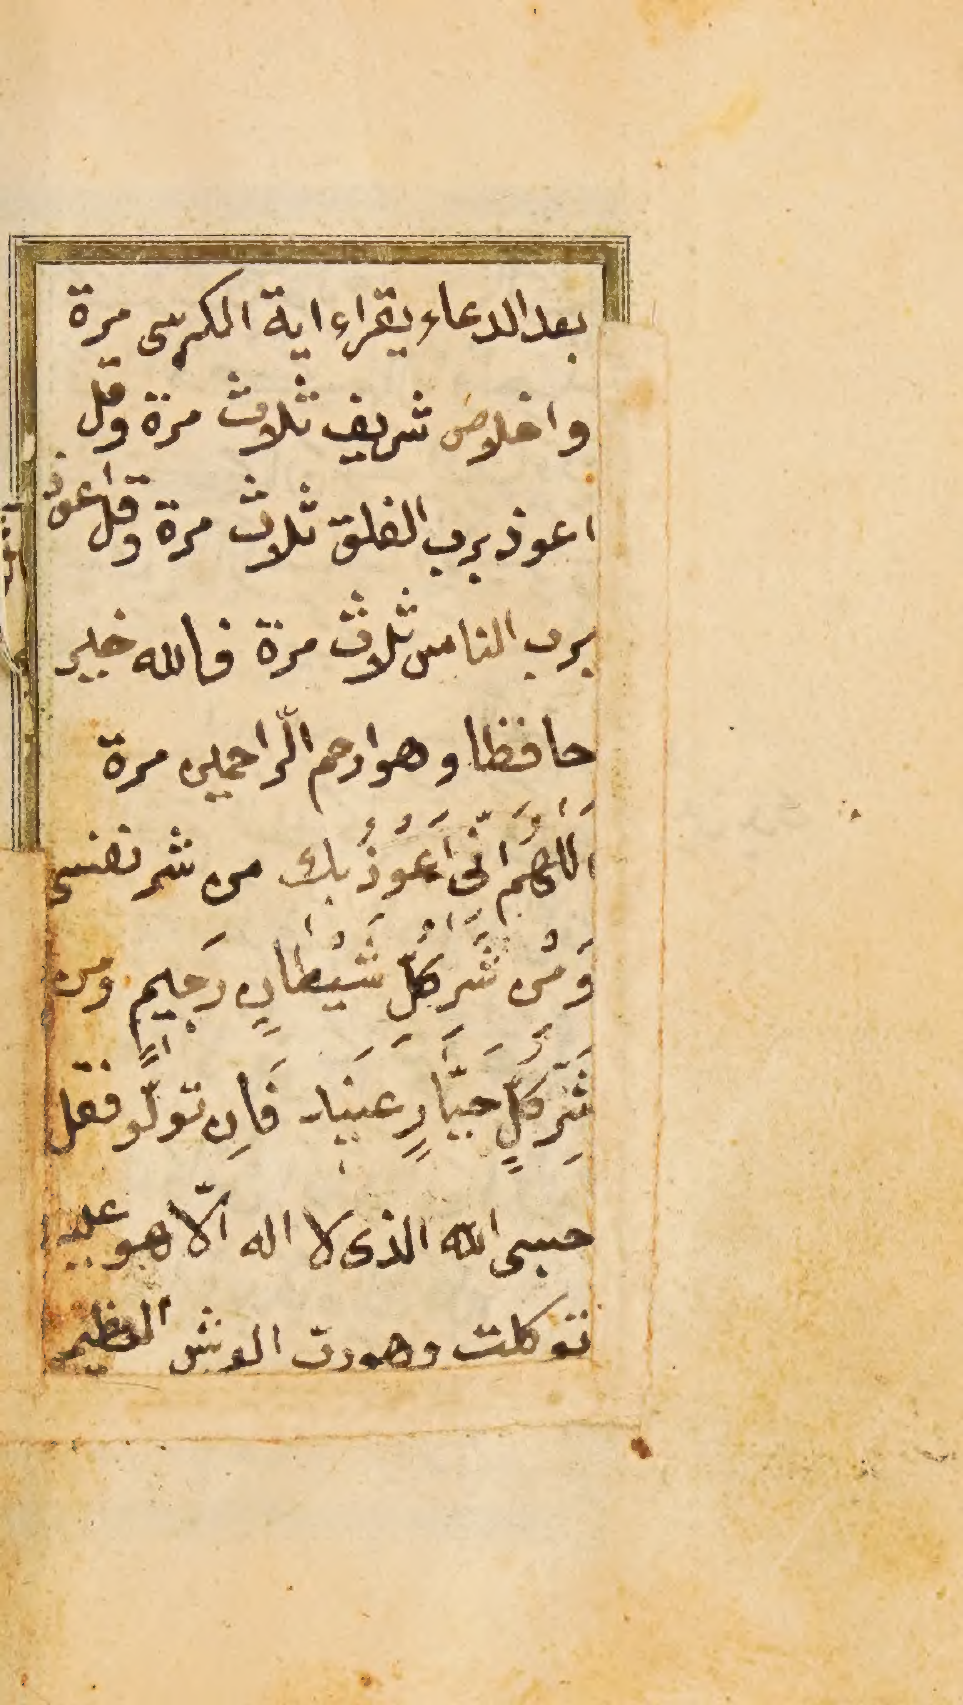 بعد الدعاء يقراء اية الكرسى مرة
واخلاص شريف ثلاث مرة وقل
اعوذ برب الفلق ثلاث مرة وقل اعوذ
برب الناس ثلاث مرة فالله خير
حافظا وهو ارحم الرّاحمين مرة
اَللّٰهُمَّ انّى اَعُوذُ بك من شر نفسى
وَمْن شَرِ كلِّ شَيْطانٍ رَجيمٍ ومن
شَرِّ كلِّ جبّارٍ عنيَد فَاِن تولّو فقل
حسبى الله الذى لا اله الّا هو عليه
توكلت وهو رب العرش العظيم